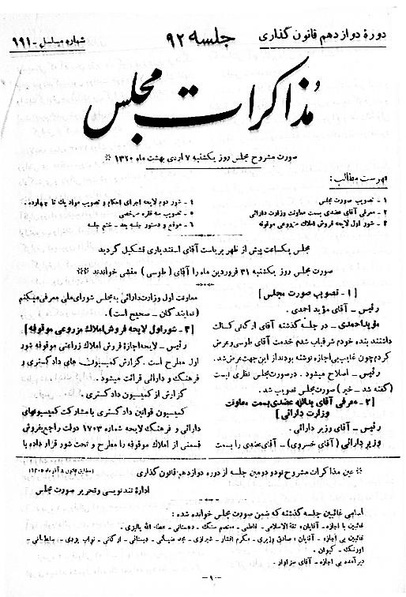 دورهٔ دوازدهم قانون گذاری
جلسه ۹۲
شماره مسلسل - ۱۹۱
مذاکرات مجلس
صورت مشروح مجلس روز یکشنبه ۷ اردی بهشت ماه ۱۳۲۰
فهرست مطالب:
۱ - تصویب صورت مجلس
۲ - معرفی آقای عضدی بسمت معاونت وزارت دارائی
۳ - شور اول لایحه فروش املاک مزروعی موقوفه
۴ - شور دوم لایحه اجرای احکام و تصویب مواد یک تا چهارده.
۵ - تصویب سه فقره مرخصی
۶ - موقع و دستور جلسه بعد - ختم جلسه
مجلس یکساعت پیش از ظهر بریاست آقای اسفندیاری تشکیل گردید
صورت مجلس روز یکشنبه ۳۱ فروردین ماه را آقای (طوسی) منشی خواندند
[۱ - تصویب صورت مجلس]
رئیس - آقای مؤید احمدی.
مؤید احمدی - در جلسه گذشته آقای از گانی کسالت
داشتند بنده خودم شرفیاب شدم خدمت آقای طوسی وعرض
کردم چون غایب بی اجازه نوشته بودند از این جهت عرض شد.
رئیس - اصلاح میشود. در صورت مجلس نظری نیست
(گفته شد - خیر) صورت مجلس تصویب شد.
[۲ - معرفی آقای عضدی بسمت معاونت
وزارت دارائی]
رئیس - آقای وزیر دارائی.
وزیر دارائی (آقای خسروی) - آقای عضدی را بسمت
معاونت اول وزارت دارائی به مجلس شورای ملی معرفی میکنم
(نمایندگان - صحیح است).
[۳ - شور اول لایحه فروش املاک مزروعی موقوفه]
رئیس - لایحه اجازه فروش املاک زراعتی موقوفه شور
اول مطرح است. گزارش کمیسیون های دادگستری و
فرهنگ و دارائی قرائت میشود.
گزارش از کمیسیون دادگستری.
کمیسیون قوانین دادگستری با مشارکت کمیسیونهای
دارائی و فرهنگ لایحه شماره ۱۷۰۳ دولت راجع بفروش
قسمتی از املاک موقوفه را مطرح و تحت شور قرار داده با
عین مذاکرات مشروح نود و دومین جلسه از دوره دوازدهم قانون گذاری
اداره تند نویسی و تحریر صورت مجلس
اسامی غائبین جلسه گذشته که ضمن صورت مجلس خوانده شده:
غائبین با اجازه - آقایان: ثقةالاسلامی - فاطمی - منعم - دهستانی - عطاء الله پالیزی.
غائبین بی اجازه - آقایان: صادق وزیری - مکرم افشار - شیرازی - مجد ضیائی - دبستانی - از گانی - نواب یزدی - سلطانی -
اورنگ - کیوان.
دیر آمده بی اجازه - آقای سزاوار.
- ۱ -